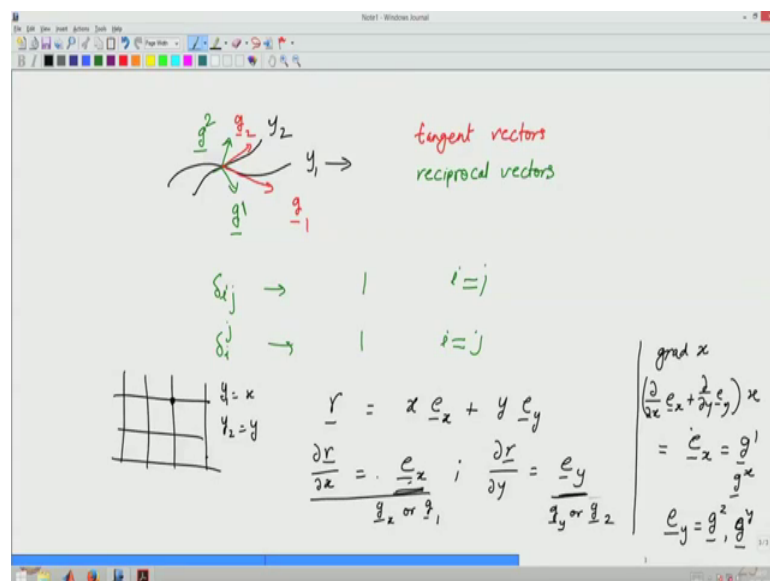 Note1 - Windows Journal
File Edit View Insert Actions Tools Help
Page Width
B I
g² g₂ y₂
y₁ →
g¹ g₁
tangent vectors
reciprocal vectors
δᵢⱼ → 1 i=j
δᵢʲ → 1 i=j
y₁ = x
y₂ = y
r = x eₓ + y e_y
∂r/∂x = eₓ ; ∂r/∂y = e_y
gₓ or g₁ g_y or g₂
grad x
(∂/∂x eₓ + ∂/∂y e_y) x
= eₓ = g¹
gˣ
e_y = g², gʸ